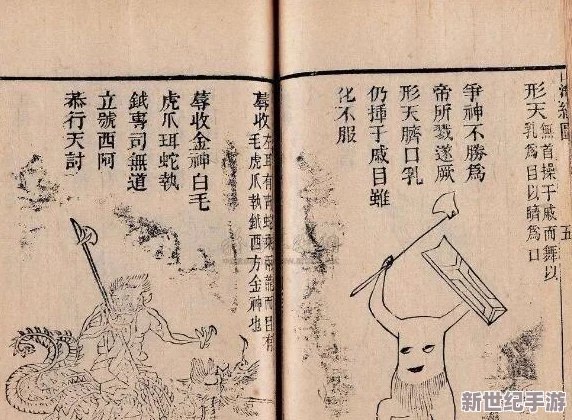 海經圖
五
形天
無首操干戚而舞以
乳爲目以臍爲口
爭神不勝爲
帝所戮遂厥
形天臍口乳
仍揮干戚雖
化不服
蓐收
左耳有青蛇乘兩龍而目有
毛虎爪執鉞西方金神也
蓐收金神白毛
虎爪珥蛇執
鉞專司無道
立號西阿
恭行天討
新世纪手游